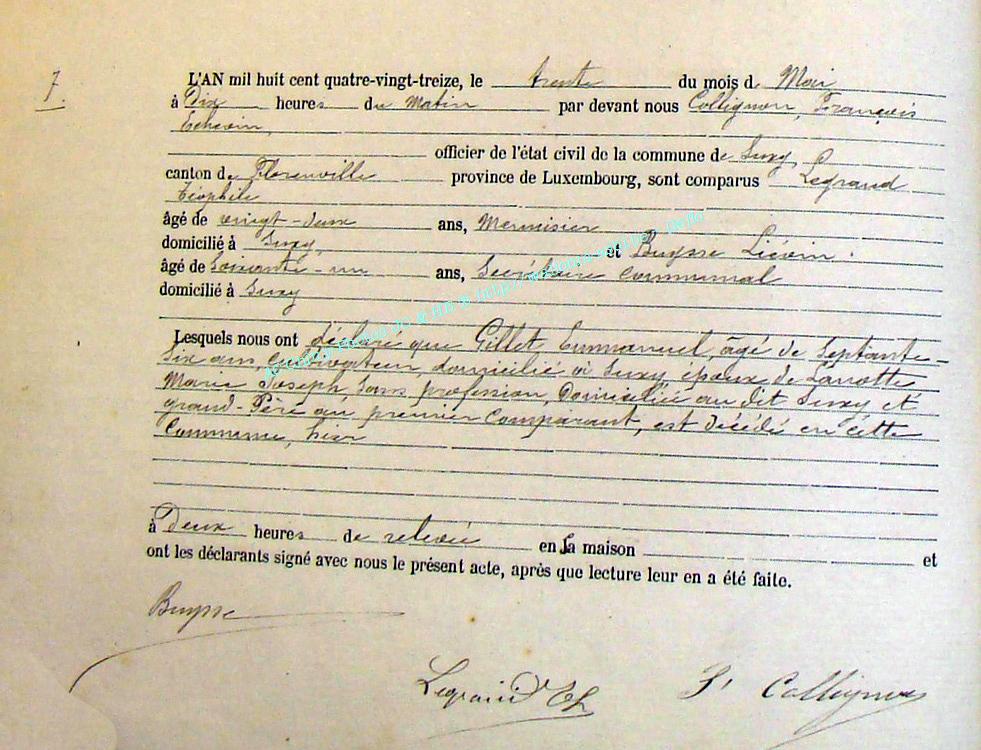 7.
L'AN mil huit cent quatre-vingt-treize, le trente du mois de Mai
à Dix heures du Matin par devant nous Collignon, François
Echevin,
officier de l'état civil de la commune de Suxy,
canton de Florenville province de Luxembourg, sont comparus Legrand
Téophile
âgé de vingt-deux ans, Menuisier
domicilié à Suxy, et Buysse Liévin
âgé de Soixante-un ans, Secrétaire Communal
domicilié à Suxy
Lesquels nous ont déclaré que Gillet Emmanuel, âgé de Septante-
Six ans, Cultivateur, domicilié à Suxy époux de Lamotte
Marie Joseph, Sans profession, Domiciliée au dit Suxy, et
grand-Père au premier Comparant, est décédé en cette
Commune, hier
à Deux heures de relevée en sa maison et
ont les déclarants signé avec nous le présent acte, après que lecture leur en a été faite.
Buysse
Legrand
Collignon